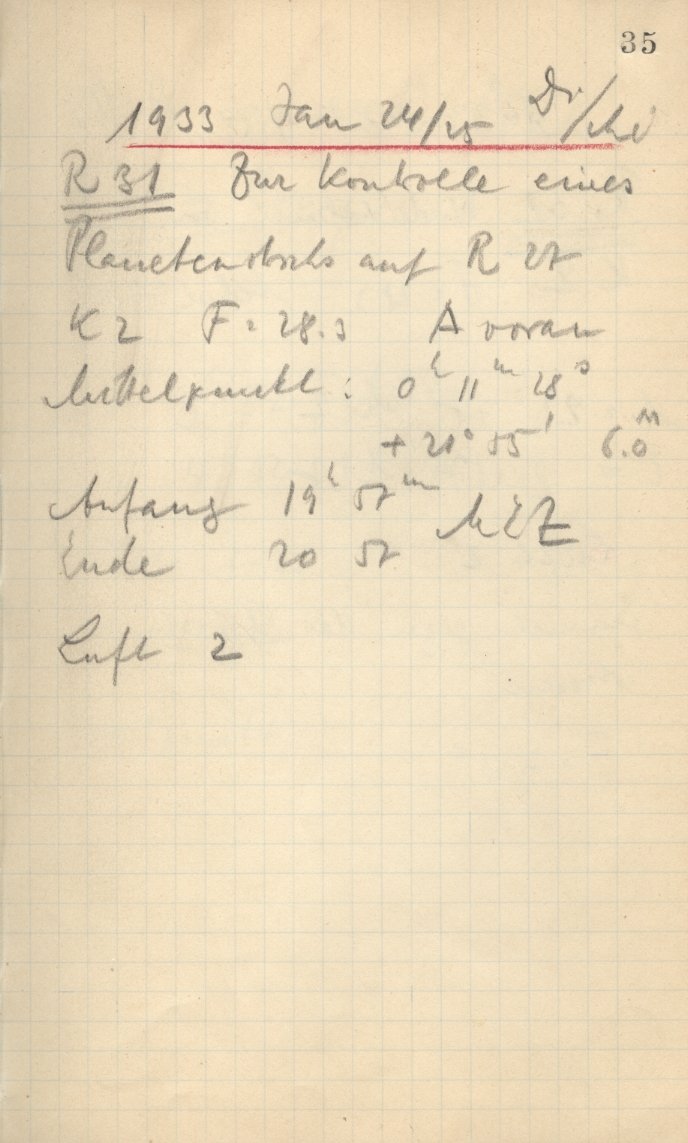 35
1933 Jan 24/25 Di/Mi
R 31 Zur Kontrolle eines
Planetenstrichs auf R 27
K 2 F = 28.3 A voran
Mittelpunkt : 0h 11m 28s
+ 21° 55' 6.0M
Anfang 19h 57m MEZ
Ende 20 57
Luft 2